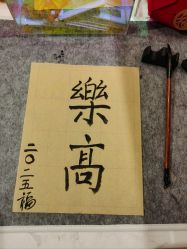 樂高
二〇二五福